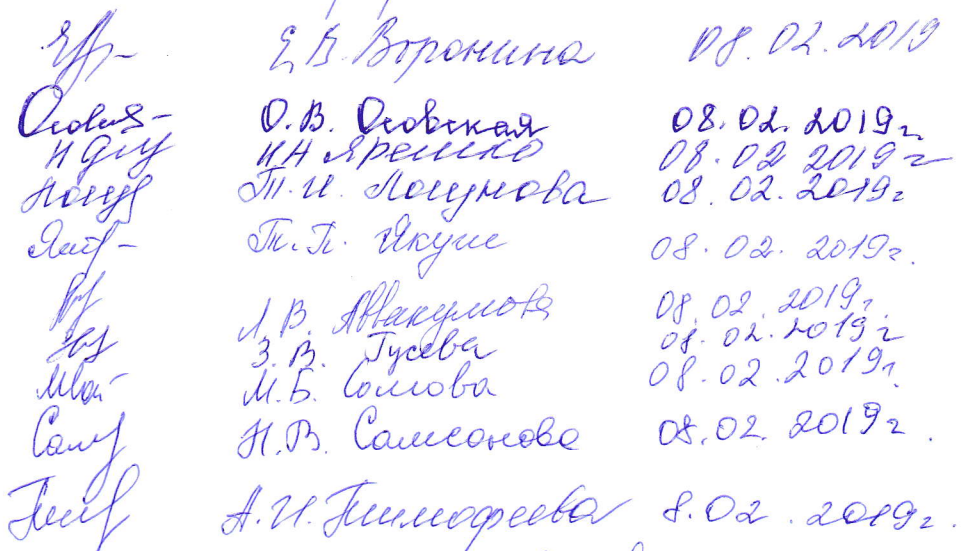 Е В Воронина 08.02.2019
О.В. Осовская 08.02.2019г
И Н Ярешко 08.02 2019г
Т.И. Логунова 08.02.2019г
Т.П. Якуш 08.02.2019г.
Л.В. Аввакумова 08.02.2019г.
З.В. Гусева 08.02.2019г
М.Б. Сомова 08.02.2019г.
Н.В. Самсонова 08.02.2019г.
А.И. Тимофеева 8.02.2019г.